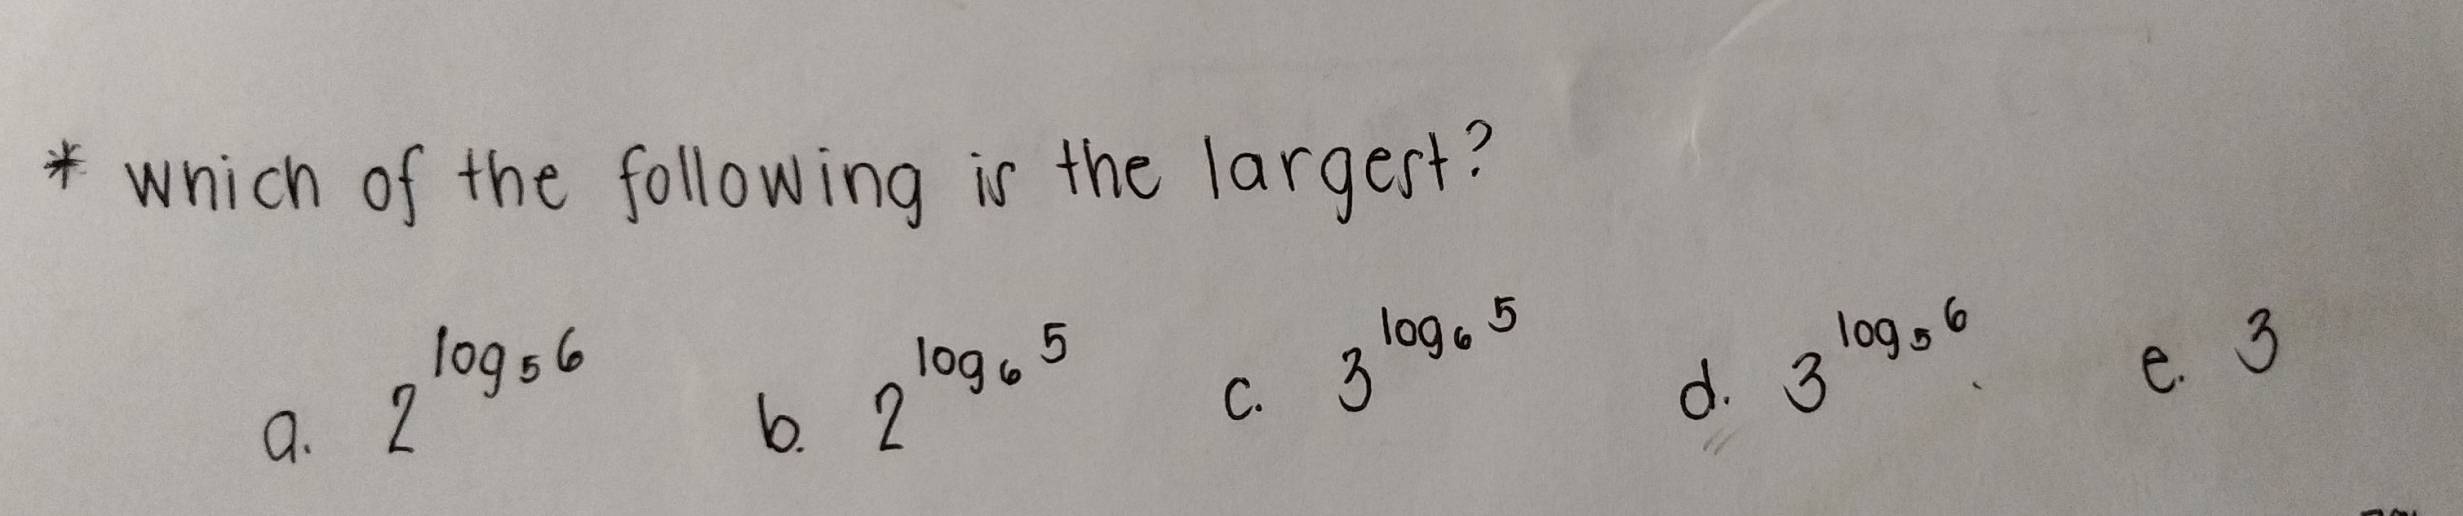 * Which of the following is the largest?
a. 2^log₅6 b. 2^log₆5 c. 3^log₆5 d. 3^log₅6. e. 3